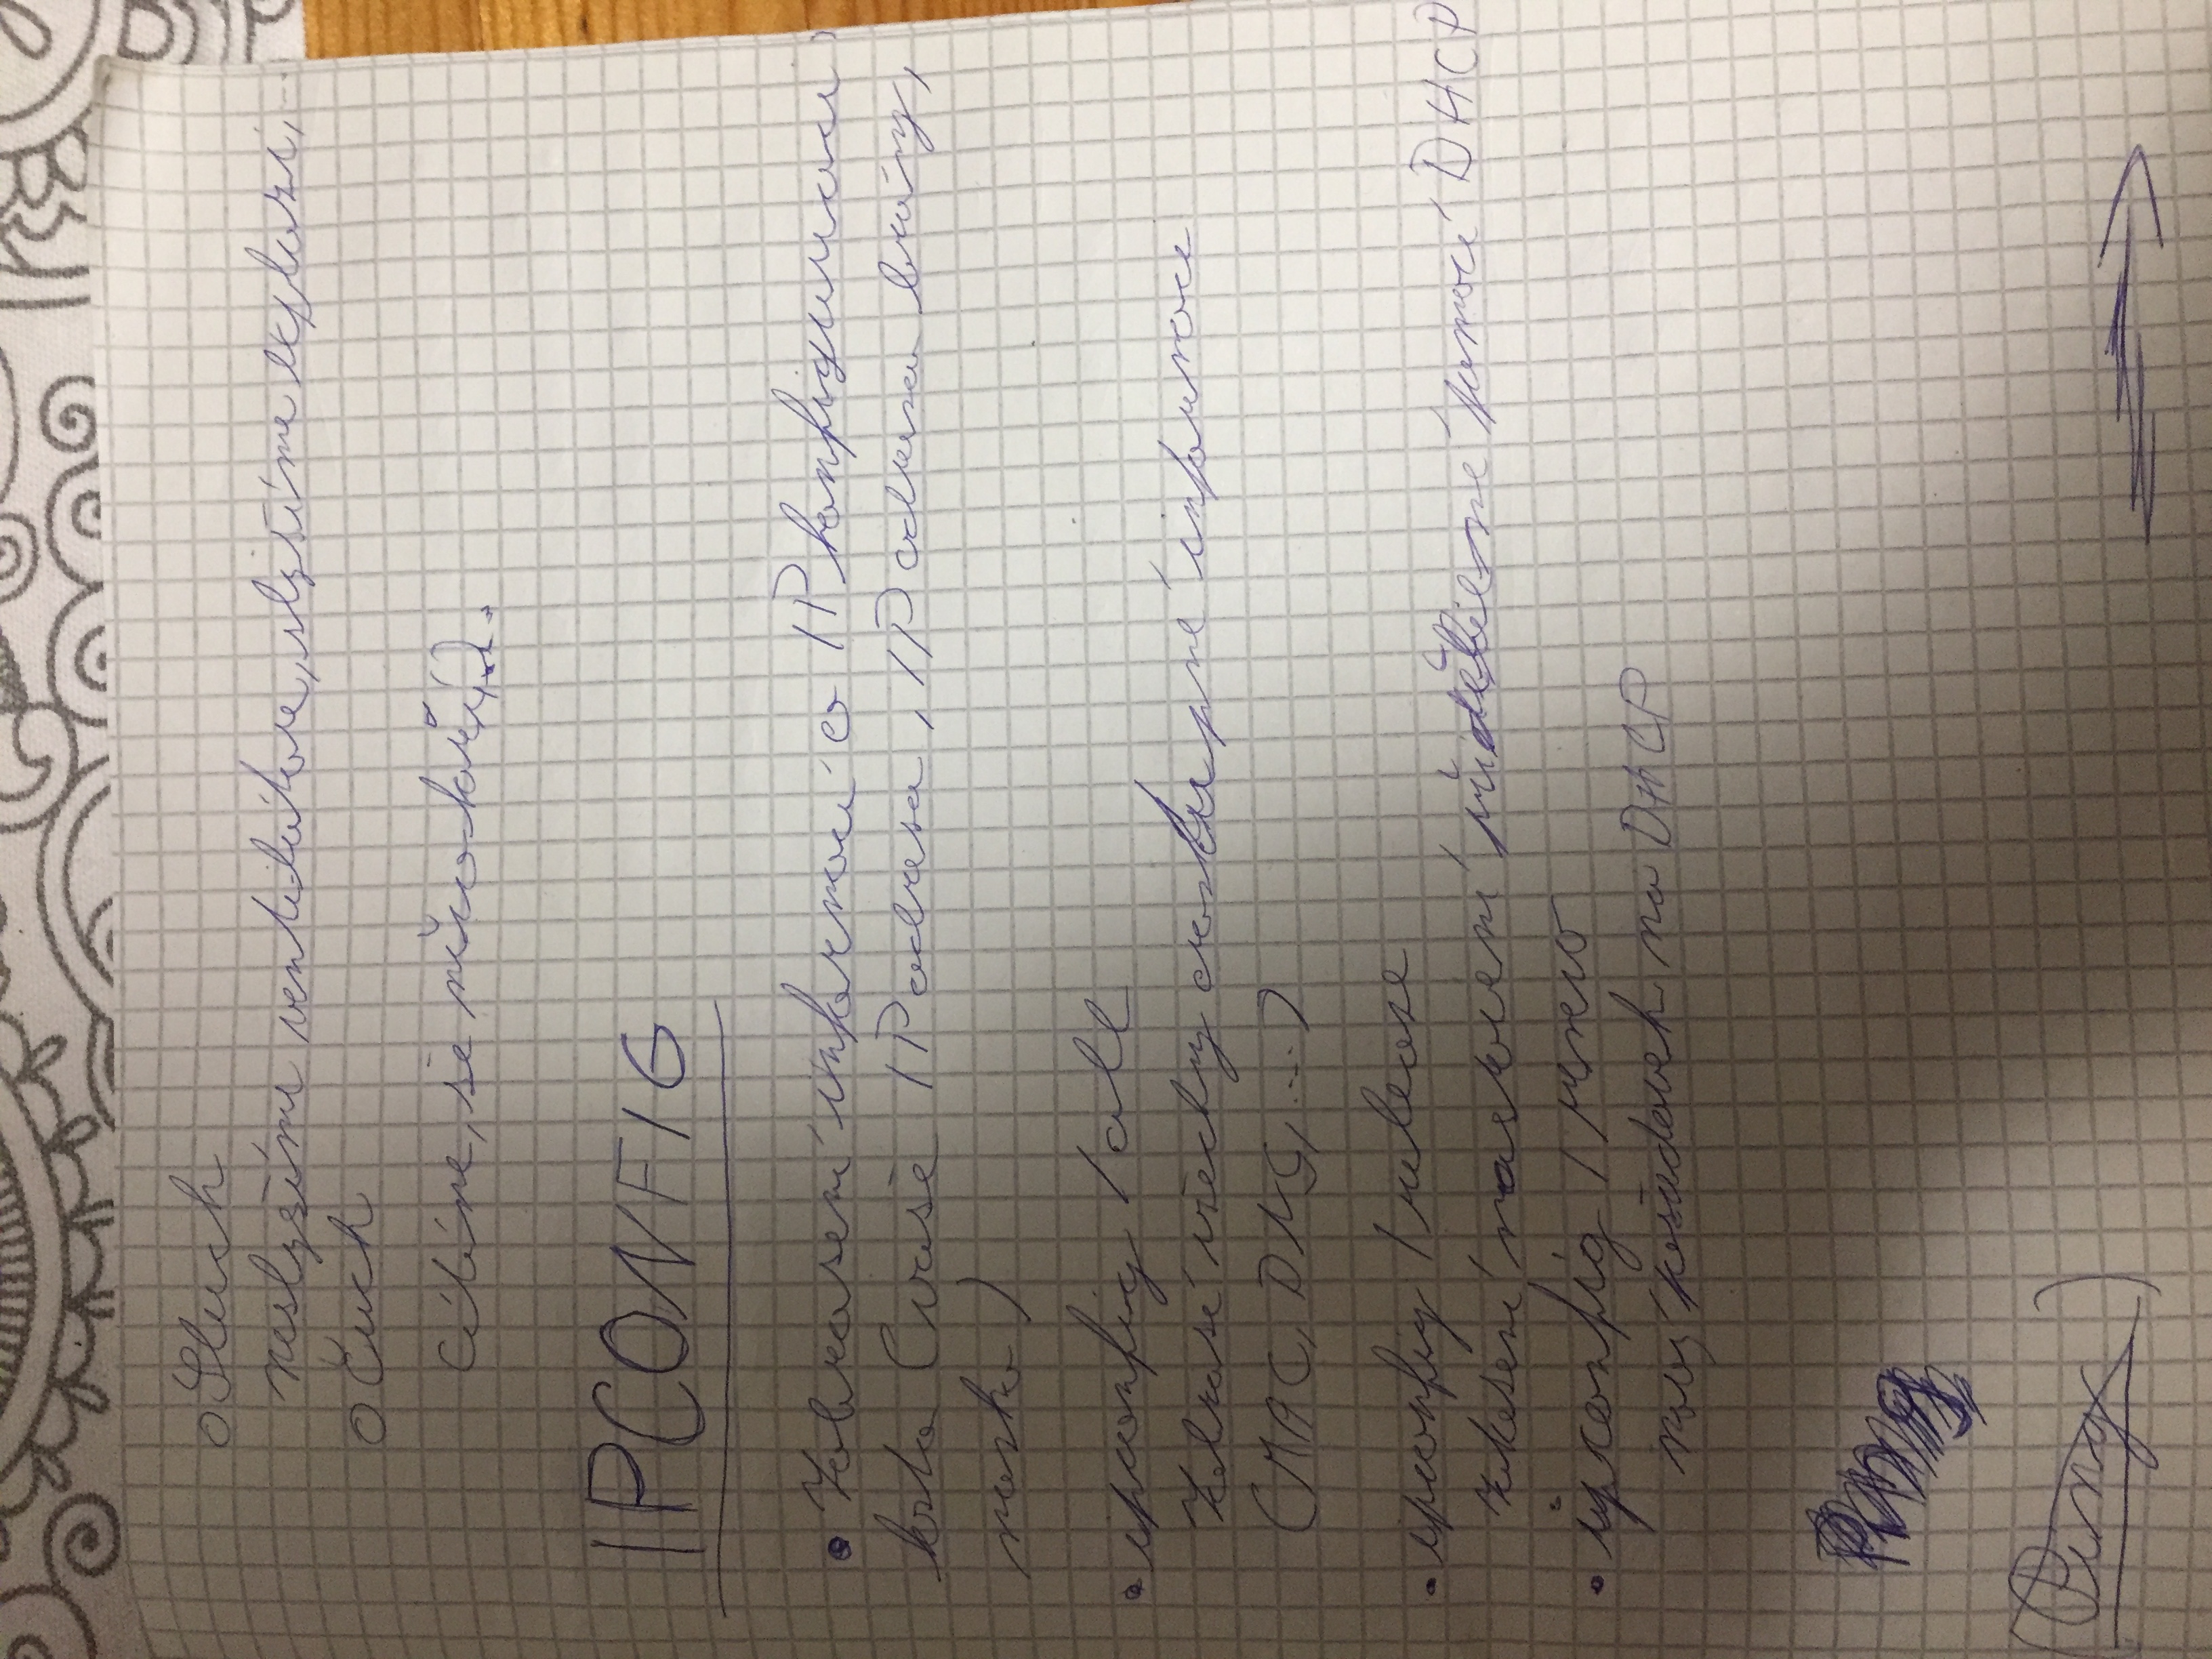 o Sluch
neslyšíme ventilátore, slyšíme explozi, ...
o Čuch
cítíme, že něco hoří().
IPCONFIG
• Zobrazení informací o IP konfiguraci
(vaše IP adresa, IP adresa brány,
maska)
• ipconfig /all
Zobrazí všechny dostupné informace
(MAC, DNS, ...)
• ipconfig /release
nastavení přidělené pomocí DHCP
• ipconfig /renew
nový požadavek na DHCP
(Ping)